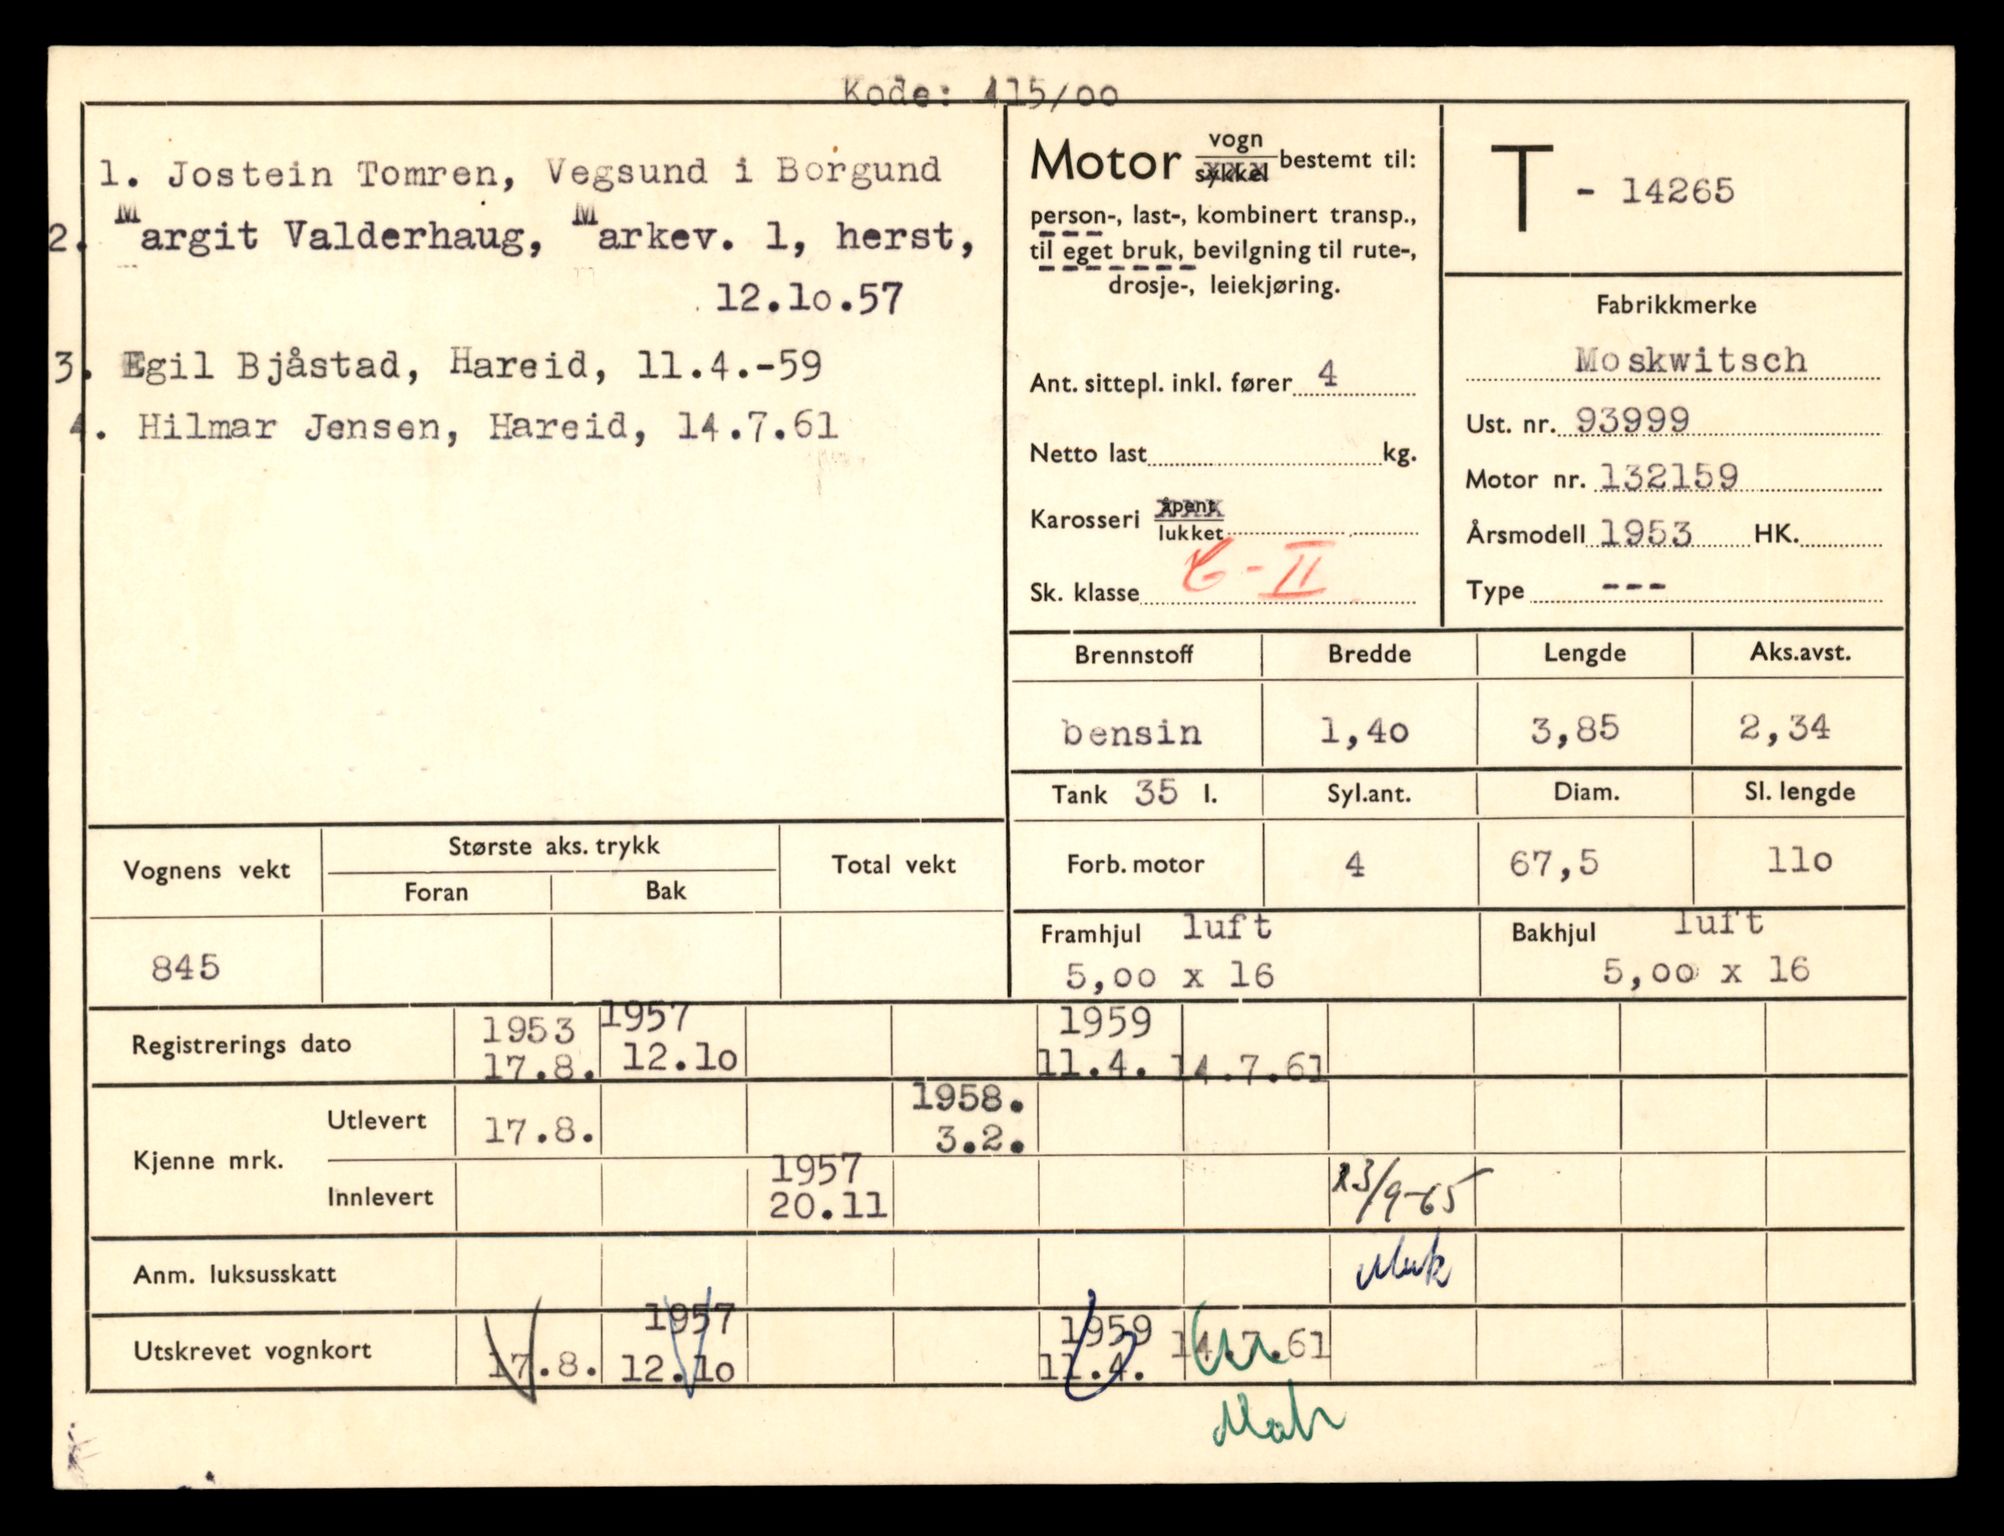 Kode: 415/00
1. Jostein Tomren, Vegsund i Borgund
2. Margit Valderhaug, Markev. 1, herst,
12.10.57
3. Egil Bjåstad, Hareid, 11.4.-59
4. Hilmar Jensen, Hareid, 14.7.61
Motor vogn sykkel bestemt til:
person-, last-, kombinert transp.,
til eget bruk, bevilgning til rute-,
drosje-, leiekjøring.
Ant. sittepl. inkl. fører 4
Netto last kg.
Karosseri åpent lukket
Sk. klasse C-II
T - 14265
Fabrikkmerke
Moskwitsch
Ust. nr. 93999
Motor nr. 132159
Årsmodell 1953 HK.
Type ---
Brennstoff Bredde Lengde Aks.avst.
bensin 1,40 3,85 2,34
Tank 35 l. Syl.ant. Diam. Sl. lengde
Forb. motor 4 67,5 110
Framhjul luft Bakhjul luft
5,00 x 16 5,00 x 16
Vognens vekt Største aks. trykk Total vekt
Foran Bak
845
Registrerings dato 1953 17.8. 1957 12.10 1959 11.4. 14.7.61
Kjenne mrk.
Utlevert 17.8. 1958. 3.2.
Innlevert 1957 20.11 23/9-65
Anm. luksusskatt
Utskrevet vognkort 17.8. 1957 12.10 1959 11.4. 14.7.61